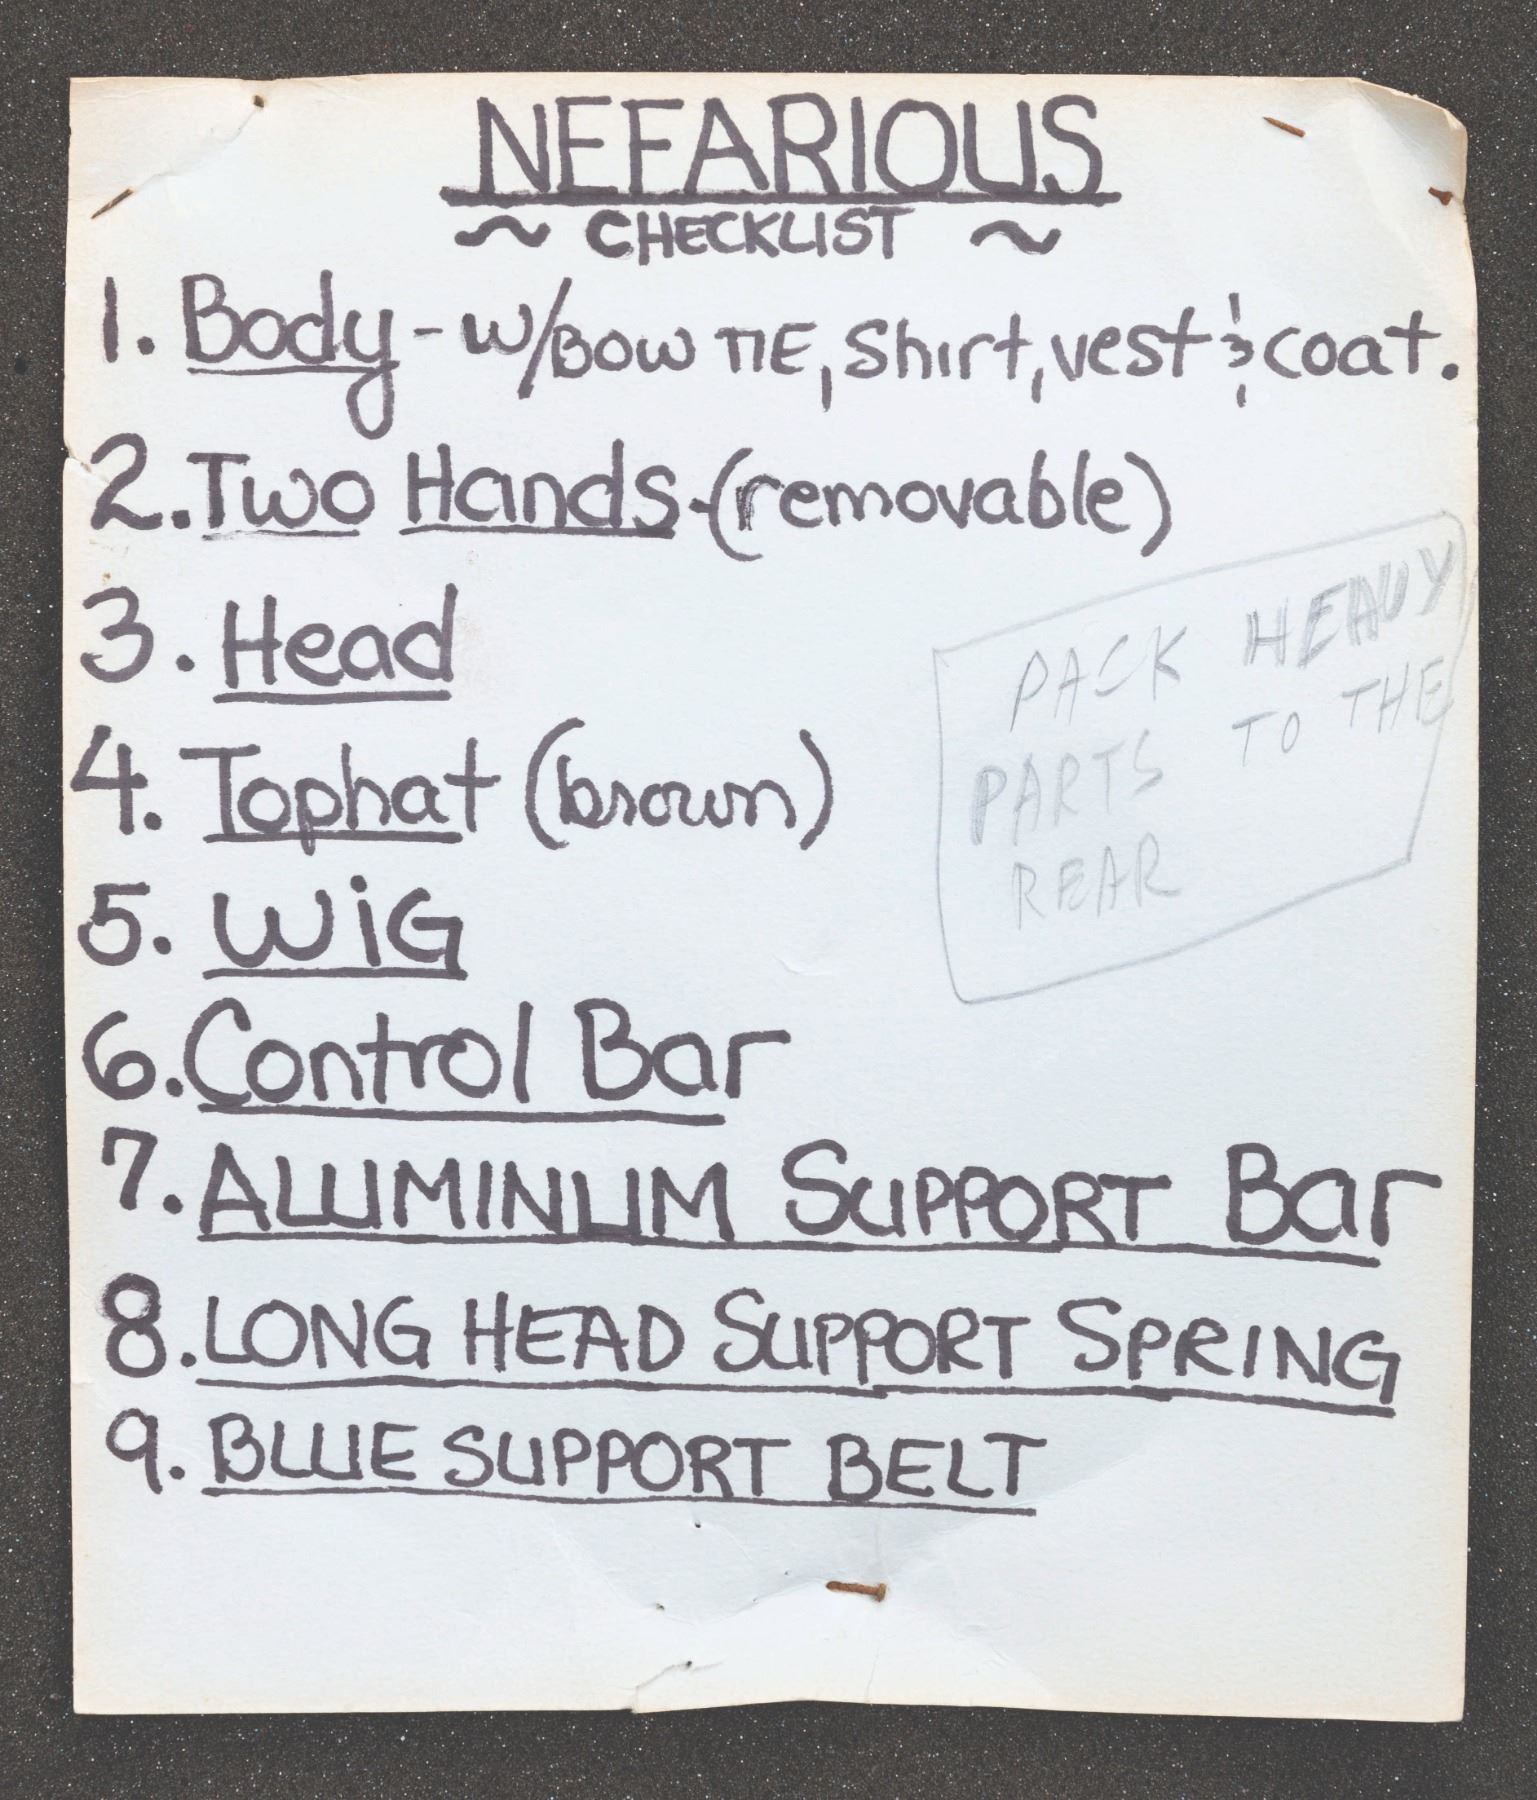 NEFARIOUS
~ CHECKLIST ~
1. Body - w/BOW TIE, Shirt, vest & coat.
2. Two Hands - (removable)
3. Head
4. Tophat (brown)
5. WiG
6. Control Bar
7. ALUMINUM SUPPORT Bar
8. LONG HEAD SUPPORT SPRING
9. BLUE SUPPORT BELT
PACK HEAVY
PARTS TO THE
REAR